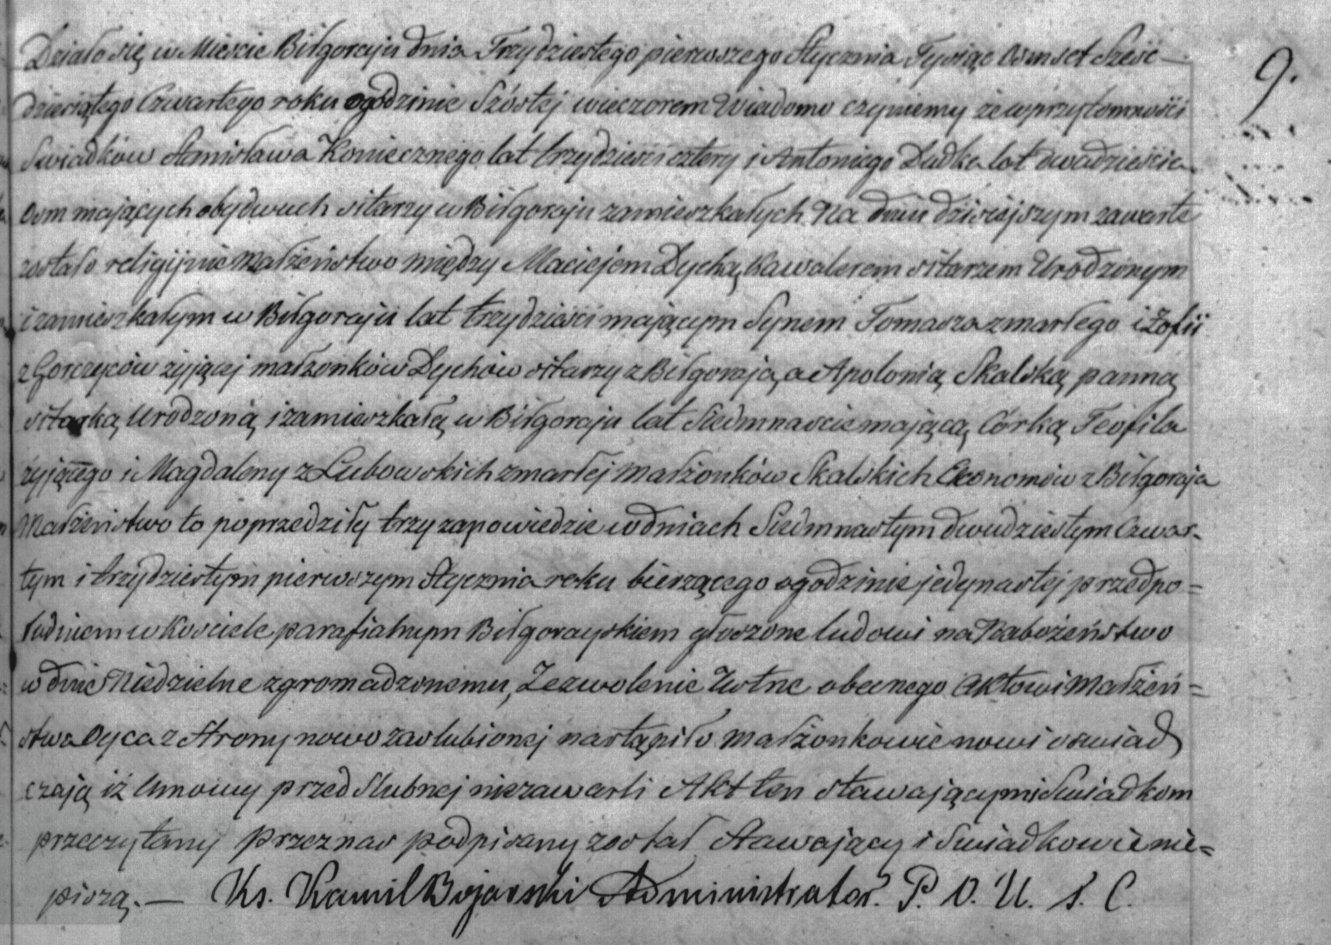 Działo się w Mieście Biłgoraju dnia Trzydziestego pierwszego Stycznia Tysiąc Osmset Sześć-
dziesiątego Czwartego roku o godzinie Szóstej wieczorem Wiadomo czyniemy że w przytomności
Swiadków Stanisława Koniecznego lat trzydzieści cztery i Antoniego Dudka lat dwadzieścia
osm mających obydwuch sitarzy w Biłgoraju zamieszkałych Na dniu dzisiejszym zawarte
zostało religijnie małżeństwo między Maciejem Dychą Kawalerem sitarzem Urodzonym
i zamieszkałym w Biłgoraju lat trzydzieści mającym Synem Tomasza zmarłego i Zofii
z Gorczyców żyjącej małżonków Dychów sitarzy z Biłgoraja, a Apolonią Skalską panną
sitarką Urodzoną i zamieszkałą w Biłgoraju lat Siedmnaście mającą Córką Teofila
żyjącego i Magdaleny z Lubowskich zmarłej małżonków Skalskich Ekonomów z Biłgoraja
Małżeństwo to poprzedziły trzy zapowiedzie w dniach Siedmnastym dwudziestym Czwar-
tym i trzydziestym pierwszym Stycznia roku bieżącego o godzinie jedynastej przedpo=
łudniem w Kościele parafialnym Biłgorayskiem głoszone ludowi na Nabożeństwo
w dnie Niedzielne zgromadzonemu, Zezwolenie Ustne obecnego Aktowi Małżeń=
stwa Oyca z Strony nowo zaślubionej nastąpiło Małżonkowie nowi oświad
czają iż Umowy przed Slubnej niezawarli Akt ten stawającym i Swiadkom
przeczytany przez nas podpisany został Stawający i Swiadkowie nie=
piszą. — Ks. Kamil Bojarski Administrator. P. O. U. S. C.
9.